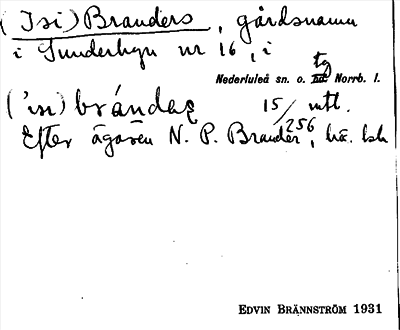 (Isi) Branders, gårdsnamn
i Sunderbyn nr 16, i
tg
Nederluleå sn. o. Norrb. l.
('isi) brándaʂ 15/ mtl.
256
Efter ägaren N. P. Brander, hä.
EDVIN BRÄNNSTRÖM 1931